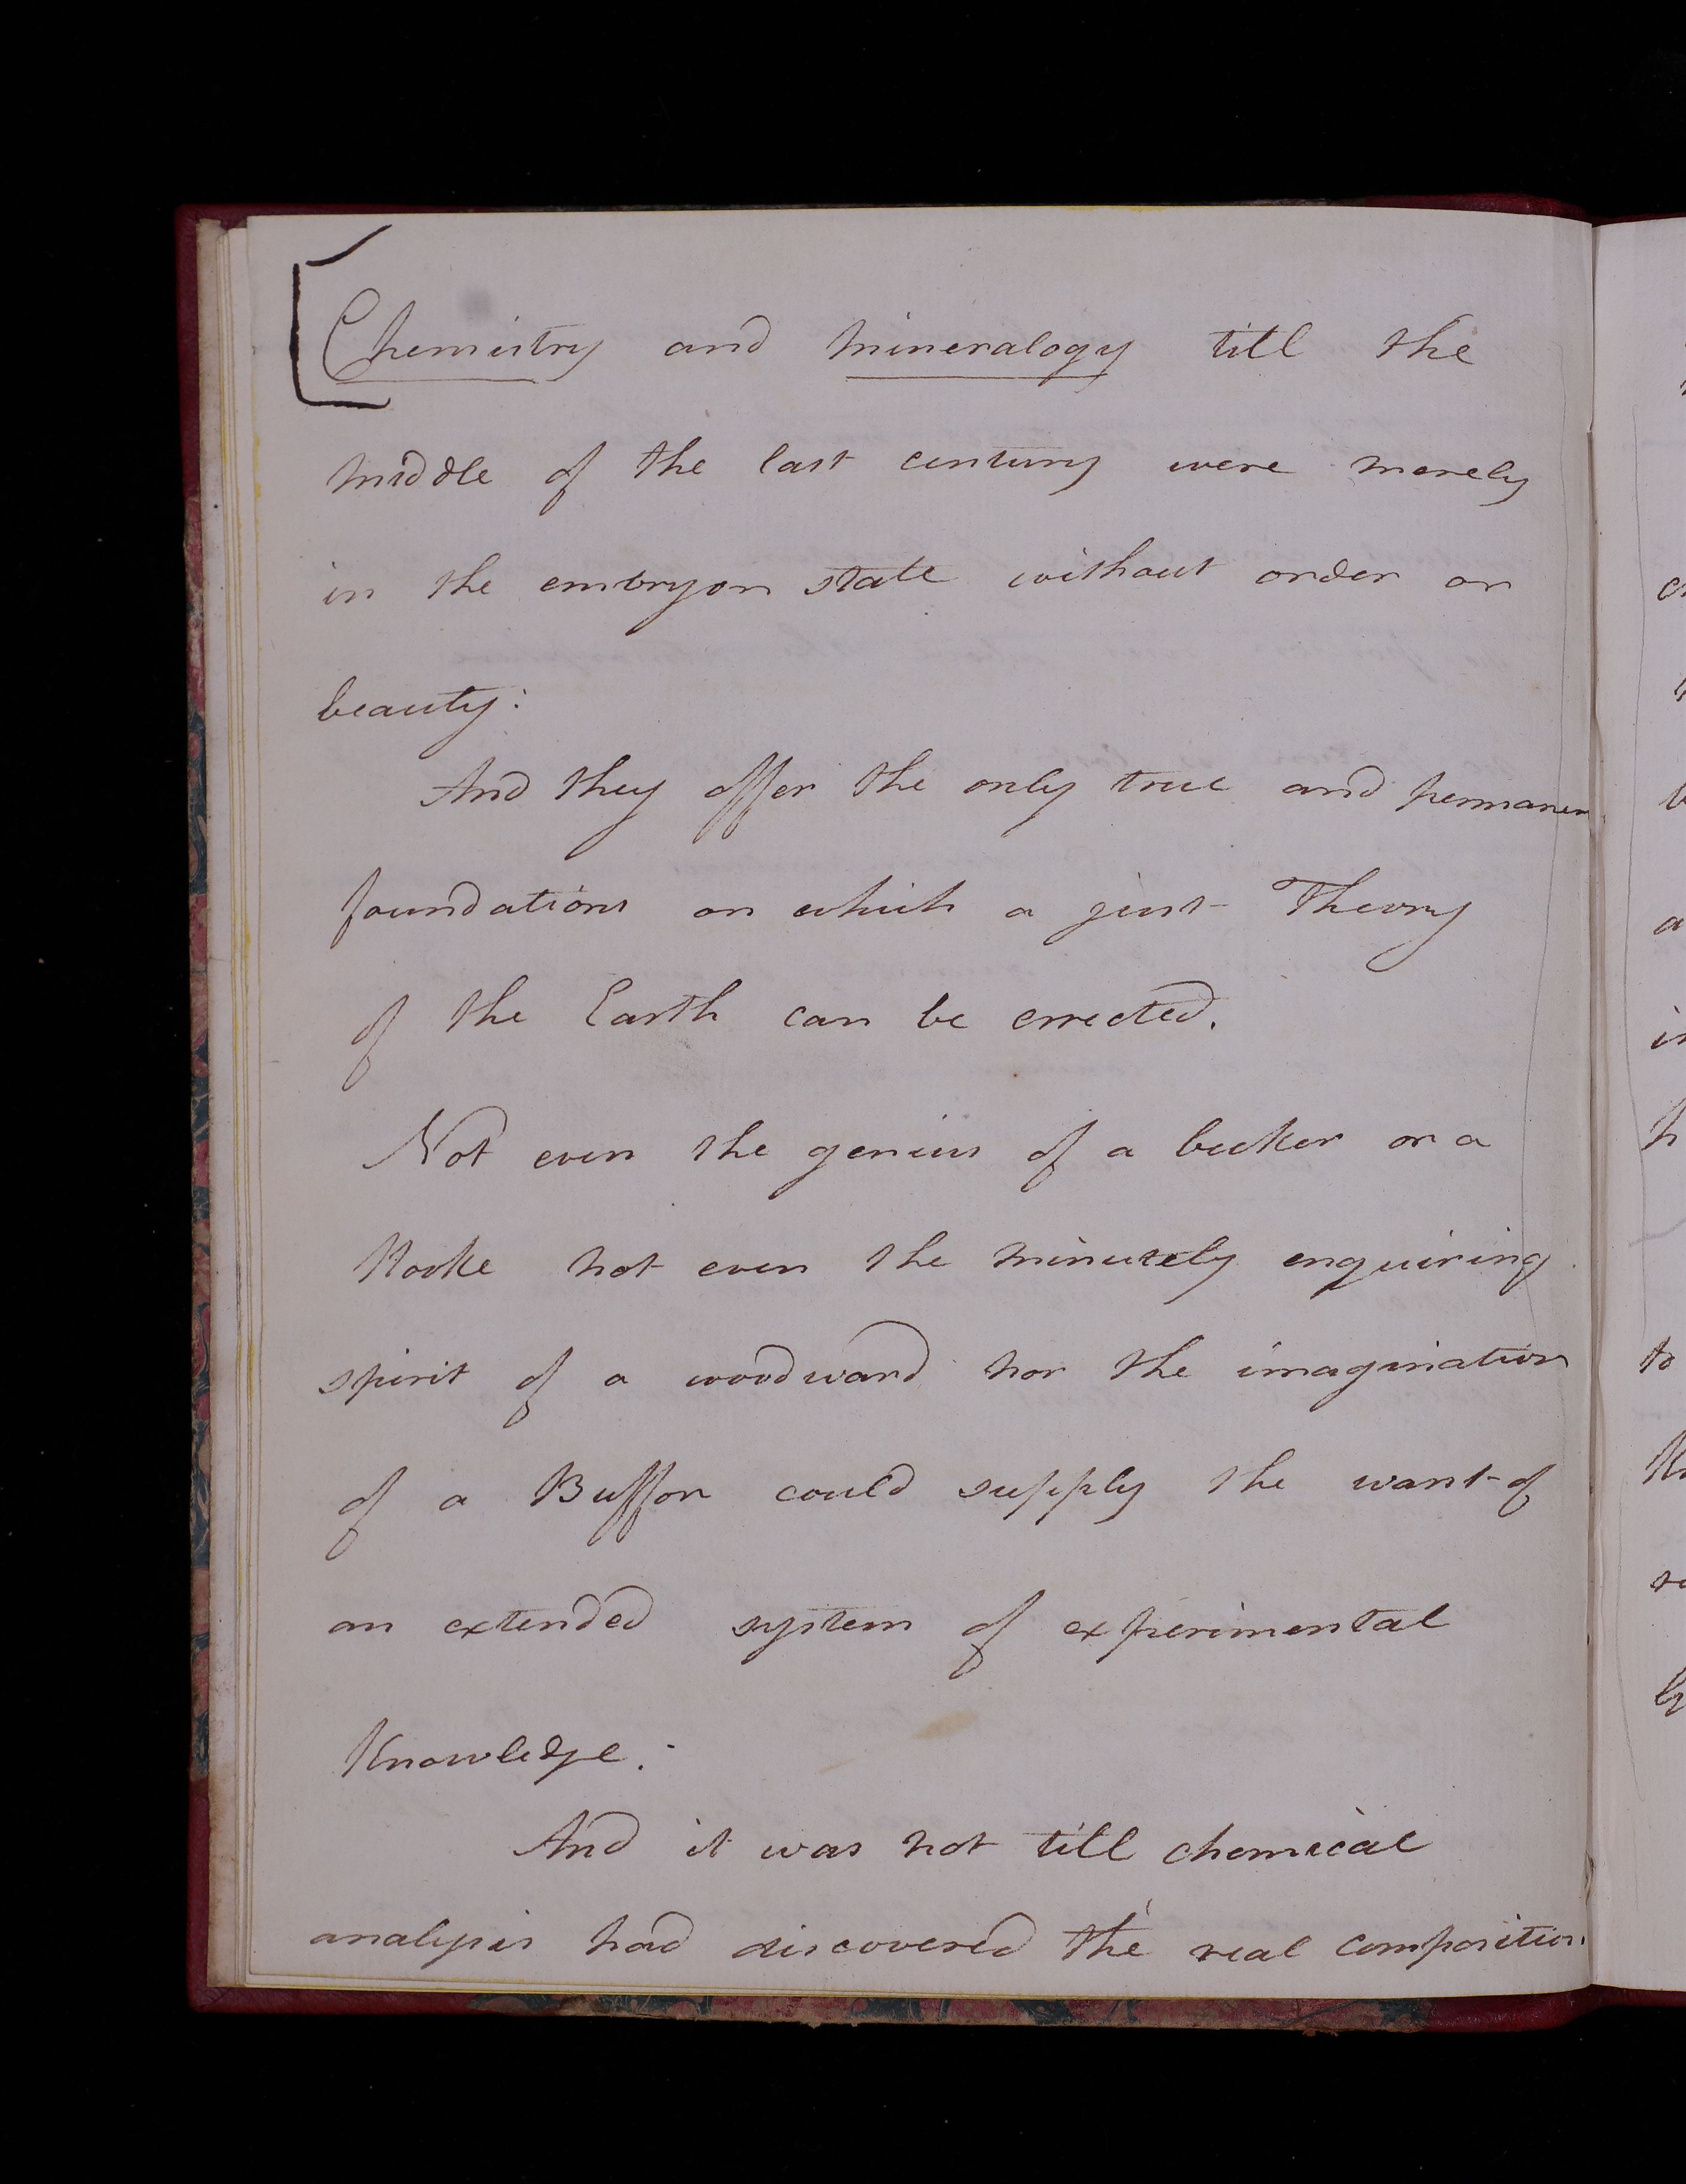 Chemistry and mineralogy till the
middle of the last century were merely
in the embryon state without order or
beauty:
And they offer the only true and permanen
foundations on which a just Theory
of the Earth can be errected.
Not even the genius of a becker or a
Hooke not even the minutely enquiring
spirit of a woodward nor the imagination
of a Buffon could supply the want of
an extended system of experimental
Knowledge:
And it was not till chemical
analysis had discovered the real composition